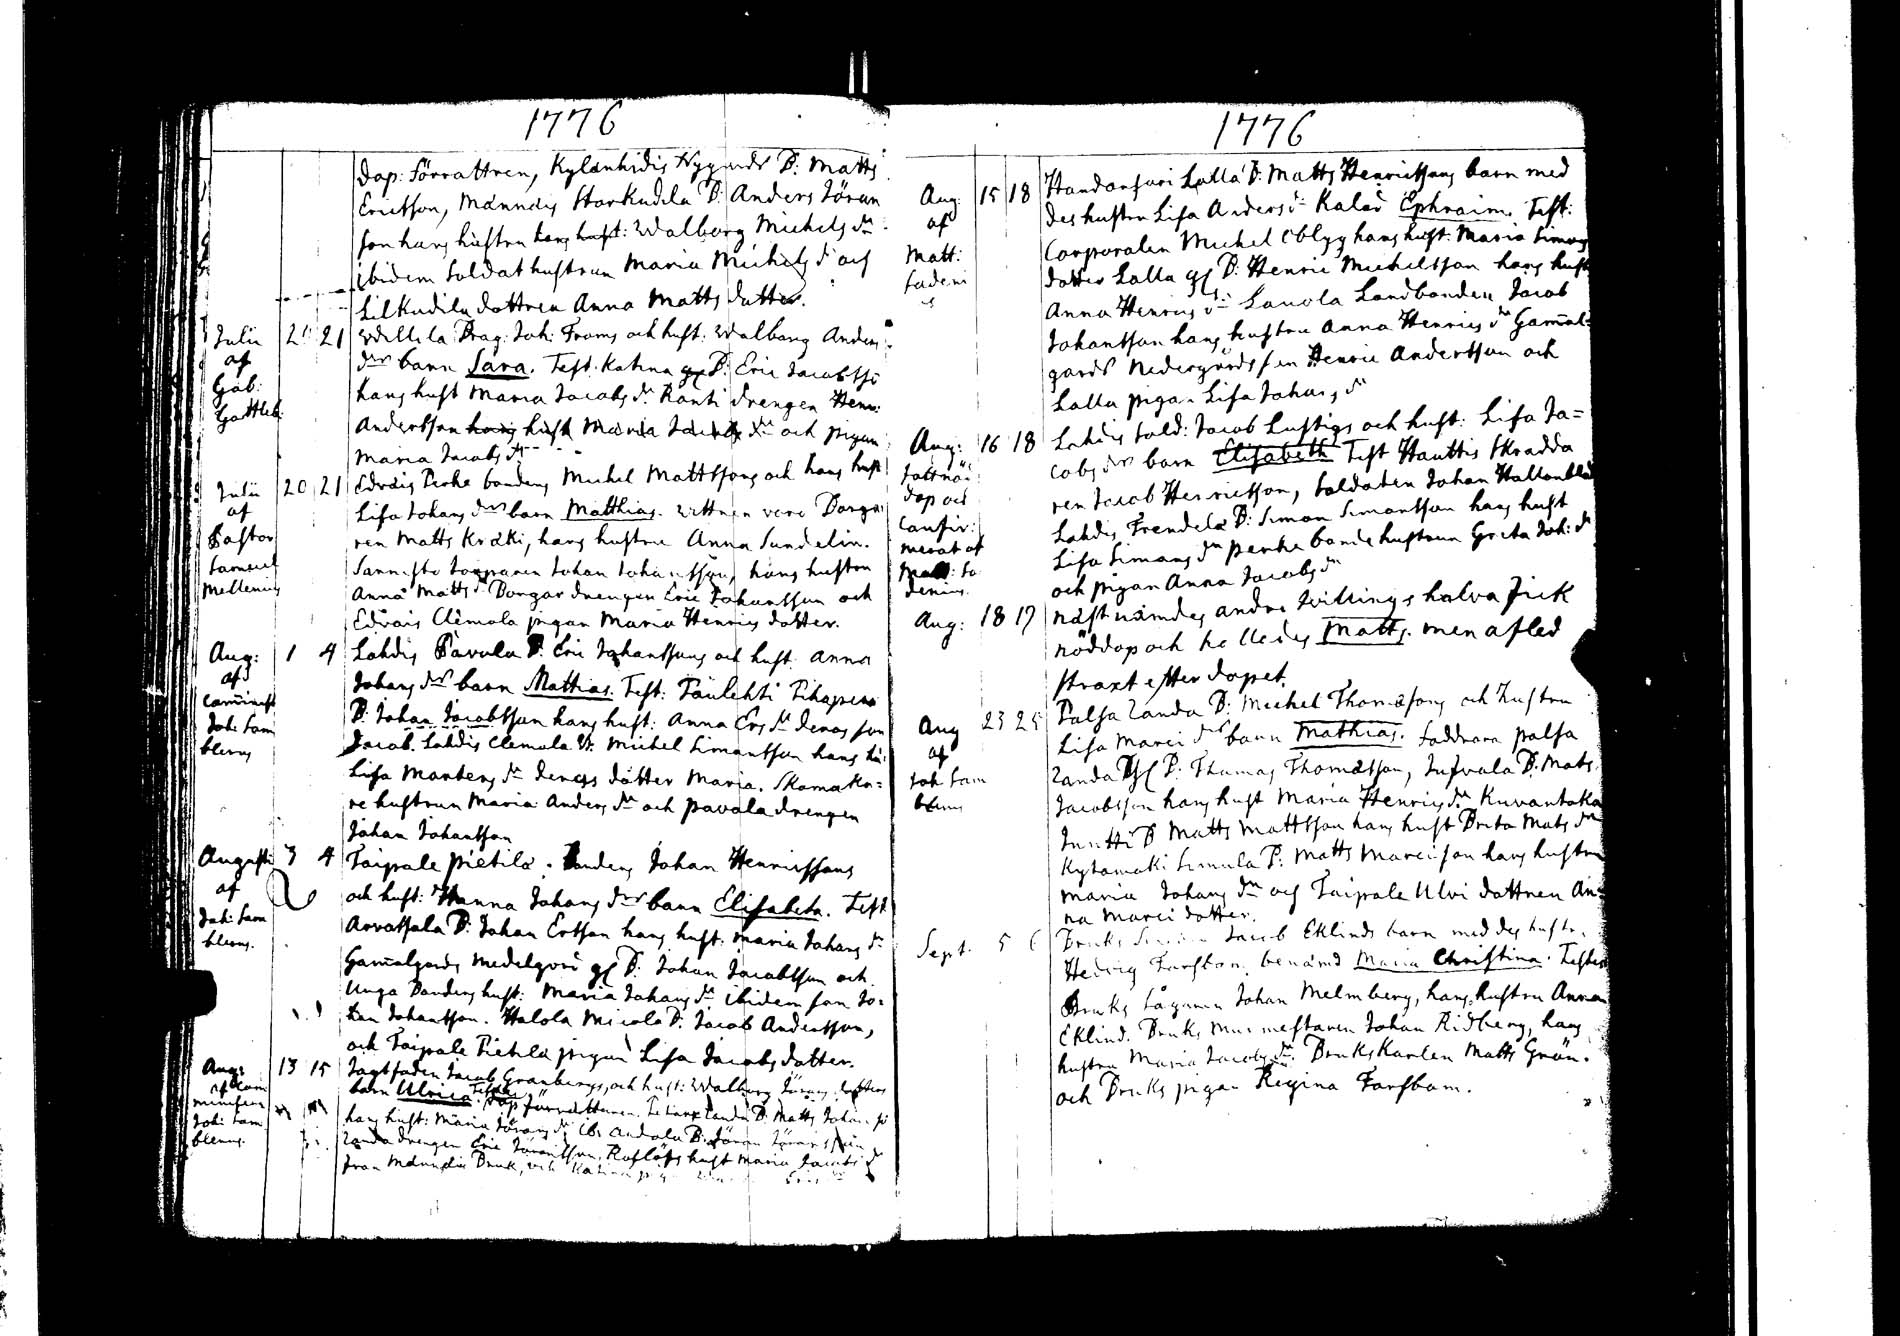 1776
dop: Förrattren, Kylänhidis Nygårds B: Matts
Ericsson, Männäis Storkudila B: Anders Jöran
son hans hustru hans hust: Walborg Michels dr
ibidem Soldathustrun Maria Michels dr och
Lilkudila dottren Anna Matts dotter.
Julii 20 21 Willila Drag: Joh: Froms och hust: Walborg Anders
af drs barn Sara. Test. Katina gl B: Eric Jacobsso
Gab: hans hust Maria Jacobs dr Ranti drengen Henr:
Gottlieb Andersson hans hust Maria Jacobs dr och pigan
Maria Jacobs dr
Julii 20 21 Edväis Perke bondens Michel Mattssons och hans hust
af Lisa Johans drs barn Matthias. Wittnen voro Borga
Pastor ren Matts Kräki, hans hustru Anna Sundelin.
Samuel Sannisto Johan Johansson, hans hustru
Mellenius Anna Matts dr Borgar drengen Eric Johansson och
Edväis Clemola pigan Maria Henrics dotter.
Aug: 1 4 Lahdis Pavola B: Eric Johanssons och hust Anna
af Johans drs barn Mathias. Test: Paulehti
Cominist B: Johan Jacobsson hans hust: Anna Ers dr deras son
Joh: Sam Jacob. Lahdis Clemola B: Michel Simonsson hans hu:
blerus Lisa Mårtens dr deras dotter Maria. Skomaka=
re hustrun Maria Anders dr och pavola drengen
Johan Johansson
Augusti 3 4 Taipale pietilä bondens Johan Henricssons
af och hust: Hanna Johans drs barn Elisabeta. Test
Joh: Sam Arvassala B: Johan Ersson hans hust: Maria Johans dr
blerus. Gamalgårds Medelgård gl B: Johan Jacobsson och
Unga Bondens hust: Maria Johans dr ibidem son Jo:
han Johansson. Halola Micola B: Jacob Andersson,
och Taipale Pietilä pigan Lisa Jacobs dotter.
Aug: 13 15 Jagtfaden Jacob Granbergs, och hust: Walborg Jörans dotters
af barn Ulrica. Test: dop förrattaren. Zanda B: Matts Johansso
Joh: Sam hans hust: Maria Jörans dr ib: Andola B: Jöran Jöransson
blerus. Zanda drengen Eric Jöransson, hust Maria Jacobs dr
från Bruk, och Katina
1776
Aug: 15 18 Handansuri Lalla B: Matts Henricssons barn med
af des hustru Lisa Anders dr Kalad Ephraim. Test:
Matt: Corporalen Michel hans hust: Maria Simons
Sadeni dotter Lalla gl B: Henric Michelsson hans hust
us Anna Henrics dr Lauola Landbonden Jacob
Johansson hans hustru Anna Henrics dr Gamal=
gårds Nedergårds son Henric Andersson och
Lalla pigan Lisa Johans dr
Aug: 16 18 Lahdis Sold: Jacob Lustigs och hust: Lisa Ja=
cobs drs barn Elisabeth Test Hauttis Skradda
dop och ren Jacob Henricsson, Soldaten Johan Hallonblad
Confir: Lahdis Trendela B: Simon Simonsson hans hust
merat af Lisa Simons dr perke bonde hustrun Greta Joh: dr
Matt: Sa och pigan Anna Jacobs dr
denius.
Aug: 18 17 näst nämdes andra Tvillings halva fick
nöddop och kallades Matts. men afled
straxt efter dopet.
Aug 23 25 Palsa Zanda B: Michel Thomassons och hustru
af Lisa Marci drs barn Mathias. Faddrara palsa
Joh Sam Zanda gl B: Thomas Thomasson, Jusvala B. Mats
blerus Jacobsson hans hust Maria Henrics dr Kuvantaka
Juntti B Matts Mattsson hans hust Brita Mats dr
Kytömäki Simula B: Matts Marcusson hans hustru
Maria Johans dr och Taipale Ulvi dottren An=
na Marci dotter.
Sept. 5 6 Bruks Jacob Eklinds barn med des hustru
Hedvig Forsbom, benämd Maria Christina. Testes
Bruks Johan Melmberg, hans hustru Anna
Eklind. Bruks Murmestaren Johan Ridberg, hans
hustru Maria Jacobs dr. Bruks Karlen Matts Grön.
och Bruks pigan Regina Forsbom.